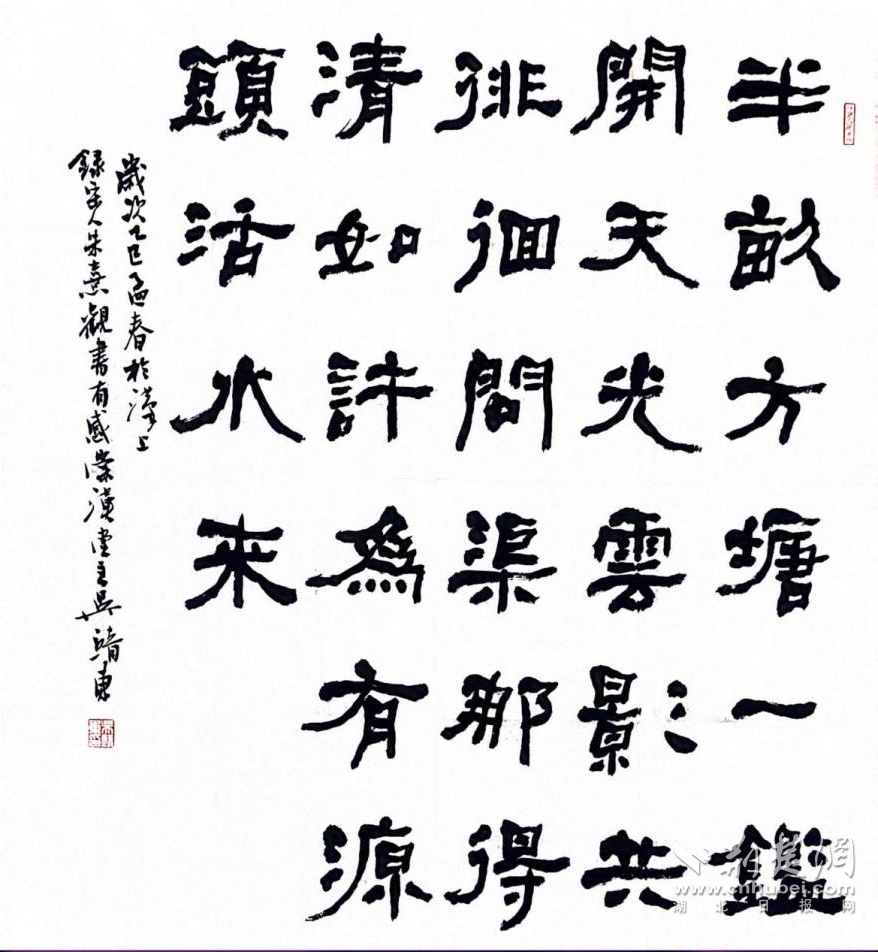 半畝方塘一鑑
開天光雲影共
徘徊問渠那得
清如許為有源
頭活水來
歲次乙巳孟春於漢上
錄宋人朱熹觀書有感 漢堂主吳靖東
荆楚網
www.cnhubei.com
湖北日报网